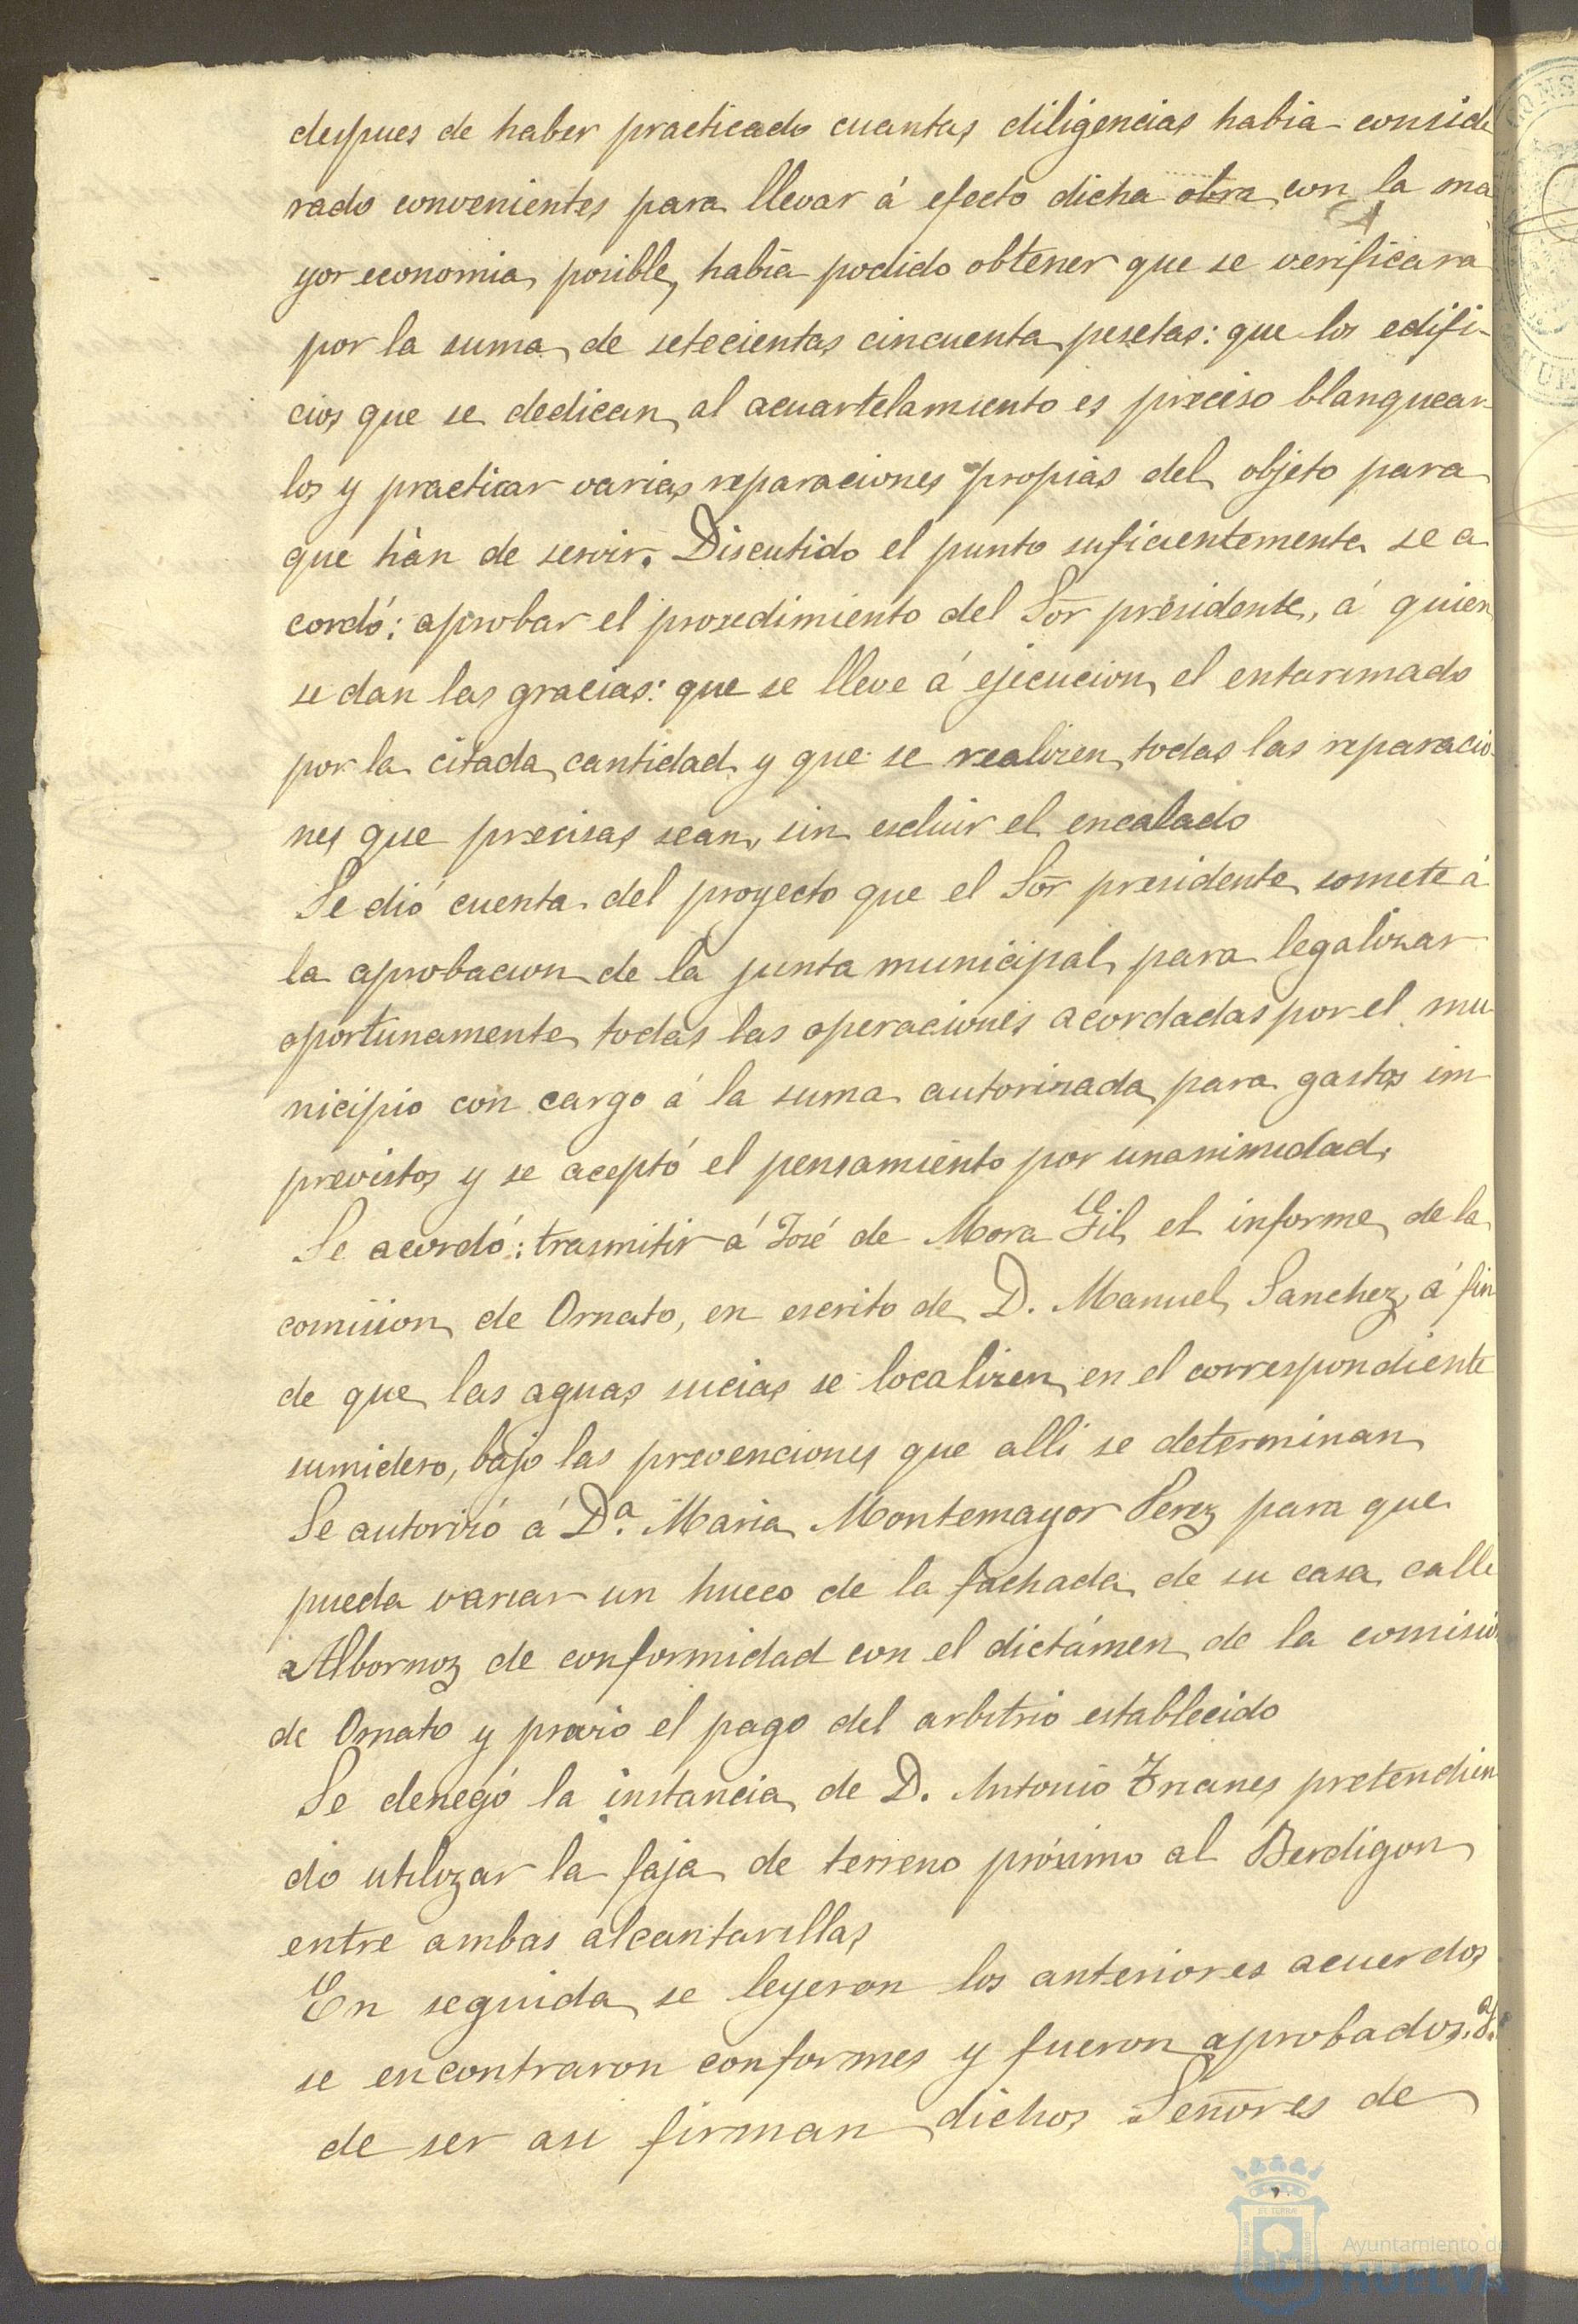 despues de haber practicado cuantas diligencias habia conside
rado convenientes para llevar á efecto dicha obra con la ma
yor economia posible, habia podido obtener que se verificara
por la suma de setecientas cincuenta pesetas: que los edifi-
cios que se dedican al acuartelamiento es preciso blanquear-
los y practicar varias reparaciones propias del objeto para
que hán de servir. Discutido el punto suficientemente se a
cordó: aprobar el procedimiento del Sor presidente, á quien
se dan las gracias: que se lleve á ejecucion el entarimado
por la citada cantidad y que se realizen todas las reparacio
nes que precisas sean, sin escluir el encalado
Se dió cuenta del proyecto que el Sor presidente somete á
la aprobacion de la junta municipal para legalizar
oportunamente todas las operaciones acordadas por el mu
nicipio con cargo á la suma autorizada para gastos im
previstos y se aceptó el pensamiento por unanimidad.
Se acordó: trasmitir á José de Mora Gil el informe de la
comision de Ornato, en escrito de D. Manuel Sanchez, á fin
de que las aguas sucias se localizen en el correspondiente
sumidero, bajo las prevenciones que alli se determinan
Se autorizó á Dª. Maria Montemayor Perez para que
pueda variar un hueco de la fachada de su casa calle
Albornoz de conformidad con el dictámen de la comision
de Ornato y previo el pago del arbitrio establecido
Se denegó la instancia de D. Antonio pretendien
do utilizar la faja de terreno próximo al Berdigon
entre ambas alcantarillas
En seguida se leyeron los anteriores acuerdos
se encontraron conformes y fueron aprobados.
de ser asi firman dichos Señores de
Ayuntamiento de
HUELVA